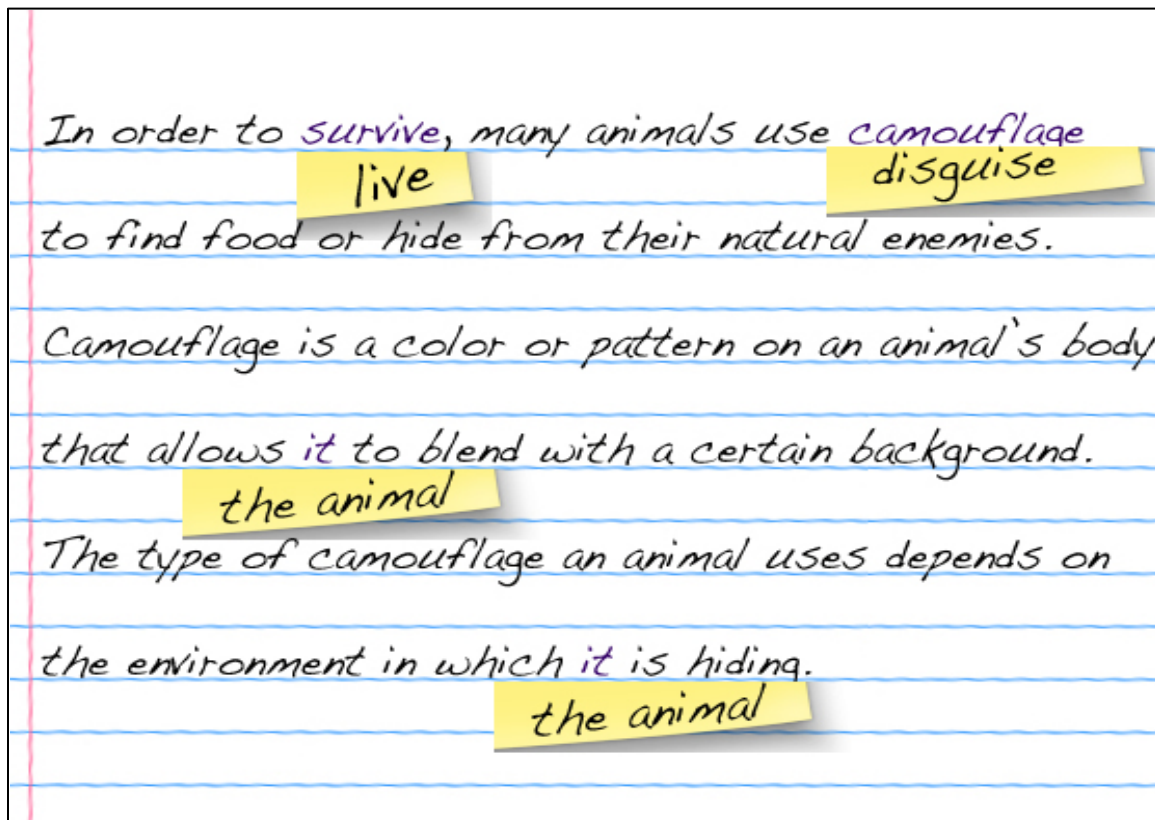 In order to survive, many animals use camouflage
live disguise
to find food or hide from their natural enemies.
Camouflage is a color or pattern on an animal's body
that allows it to blend with a certain background.
the animal
The type of camouflage an animal uses depends on
the environment in which it is hiding.
the animal